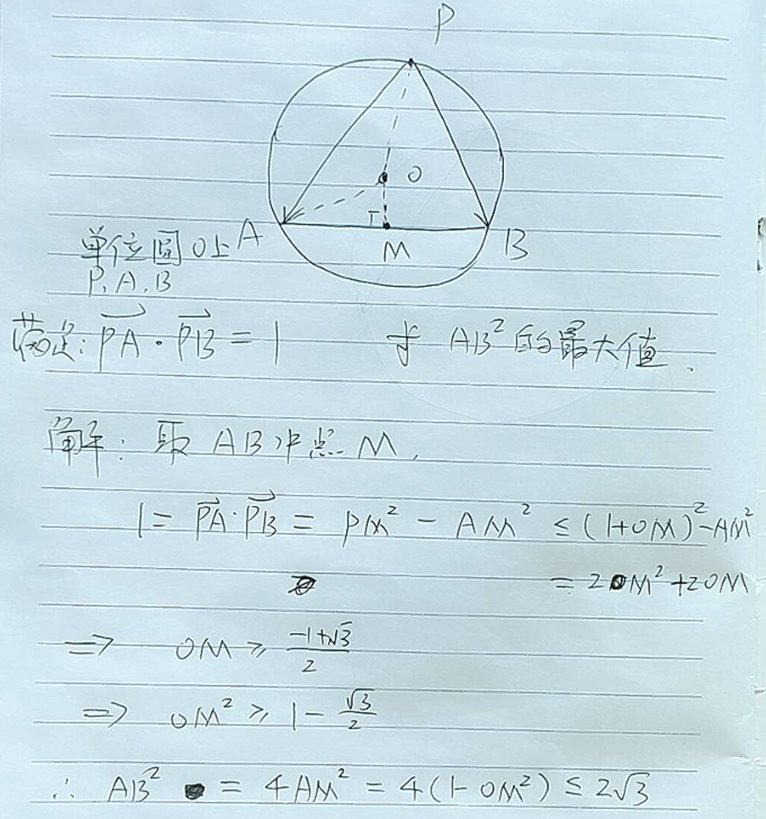 P
O
A
M
B
单位圆O上
P、A、B
满足: PA · PB = 1 求 AB² 的最大值.
解: 取 AB 中点 M,
1 = PA · PB = PM² - AM² ≤ (1+OM)² - AM²
= 2OM² + 2OM
⇒ OM ≥ (-1+√3)/2
⇒ OM² ≥ 1 - √3/2
∴ AB² = 4AM² = 4(1-OM²) ≤ 2√3